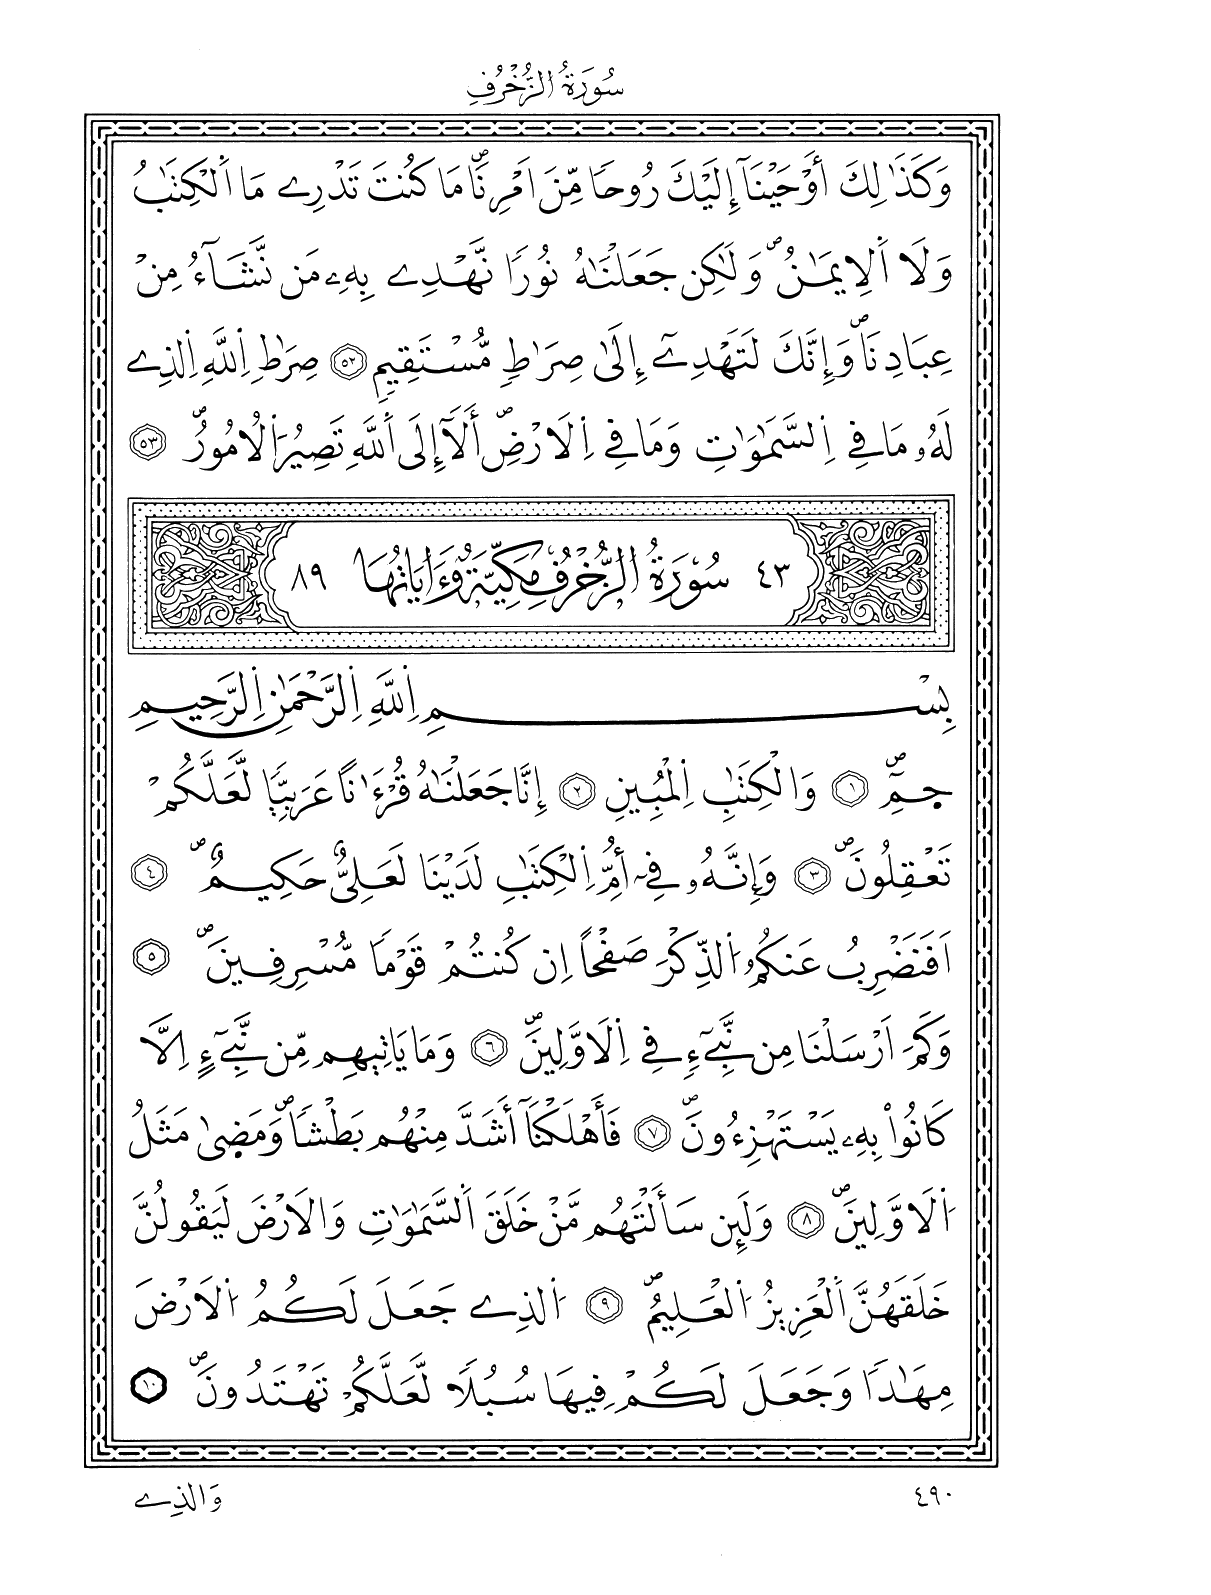 سُورَةُ الزُّخْرُفِ
وَكَذَٰلِكَ أَوْحَيْنَآ إِلَيْكَ رُوحاٗ مِّنَ اَمْرِنَاۖ مَا كُنتَ تَدْرِے مَا اَ۬لْكِتَٰبُ
وَلَا اَ۬لِايمَٰنُۖ وَلَٰكِن جَعَلْنَٰهُ نُوراٗ نَّهْدِے بِهِۦ مَن نَّشَآءُ مِنْ
عِبَادِنَاۖ وَإِنَّكَ لَتَهْدِےٓ إِلَىٰ صِرَٰطٖ مُّسْتَقِيمٖ ٥٢ صِرَٰطِ اِ۬للَّهِ اِ۬لذِے
لَهُۥ مَا فِے اِ۬لسَّمَٰوَٰتِ وَمَا فِے اِ۬لَارْضِۖ أَلَآ إِلَى اَ۬للَّهِ تَصِيرُ اُ۬لُامُورُۖ ٥٣
٤٣ سُورَةُ الزُّخْرُفِ مَكِّيَّةٌ وَءَايَاتُهَا ٨٩
بِسْمِ اِ۬للَّهِ اِ۬لرَّحْمَٰنِ اِ۬لرَّحِيمِ
حمِٓۖ ١ وَالْكِتَٰبِ اِ۬لْمُبِينِ ٢ إِنَّا جَعَلْنَٰهُ قُرْءَٰناً عَرَبِيّاٗ لَّعَلَّكُمْ
تَعْقِلُونَۖ ٣ وَإِنَّهُۥ فِےٓ أُمِّ اِ۬لْكِتَٰبِ لَدَيْنَا لَعَلِيٌّ حَكِيمٌۖ ٤
اَفَنَضْرِبُ عَنكُمُ اُ۬لذِّكْرَ صَفْحاً اِن كُنتُمْ قَوْماٗ مُّسْرِفِينَۖ ٥
وَكَمَ اَرْسَلْنَا مِن نَّبِےٓءٖ فِے اِ۬لَاوَّلِينَۖ ٦ وَمَا يَاتِيهِم مِّن نَّبِےٓءٍ اِلَّا
كَانُواْ بِهِۦ يَسْتَهْزِءُونَۖ ٧ فَأَهْلَكْنَآ أَشَدَّ مِنْهُم بَطْشاٗۖ وَمَضَىٰ مَثَلُ
اُ۬لَاوَّلِينَۖ ٨ وَلَئِن سَأَلْتَهُم مَّنْ خَلَقَ اَ۬لسَّمَٰوَٰتِ وَالَارْضَ لَيَقُولُنَّ
خَلَقَهُنَّ اَ۬لْعَزِيزُ اُ۬لْعَلِيمُۖ ٩ اُ۬لذِے جَعَلَ لَكُمُ اُ۬لَارْضَ
مِهَٰداٗ وَجَعَلَ لَكُمْ فِيهَا سُبُلاٗ لَّعَلَّكُمْ تَهْتَدُونَۖ ١٠
٤٩٠ وَالذِے